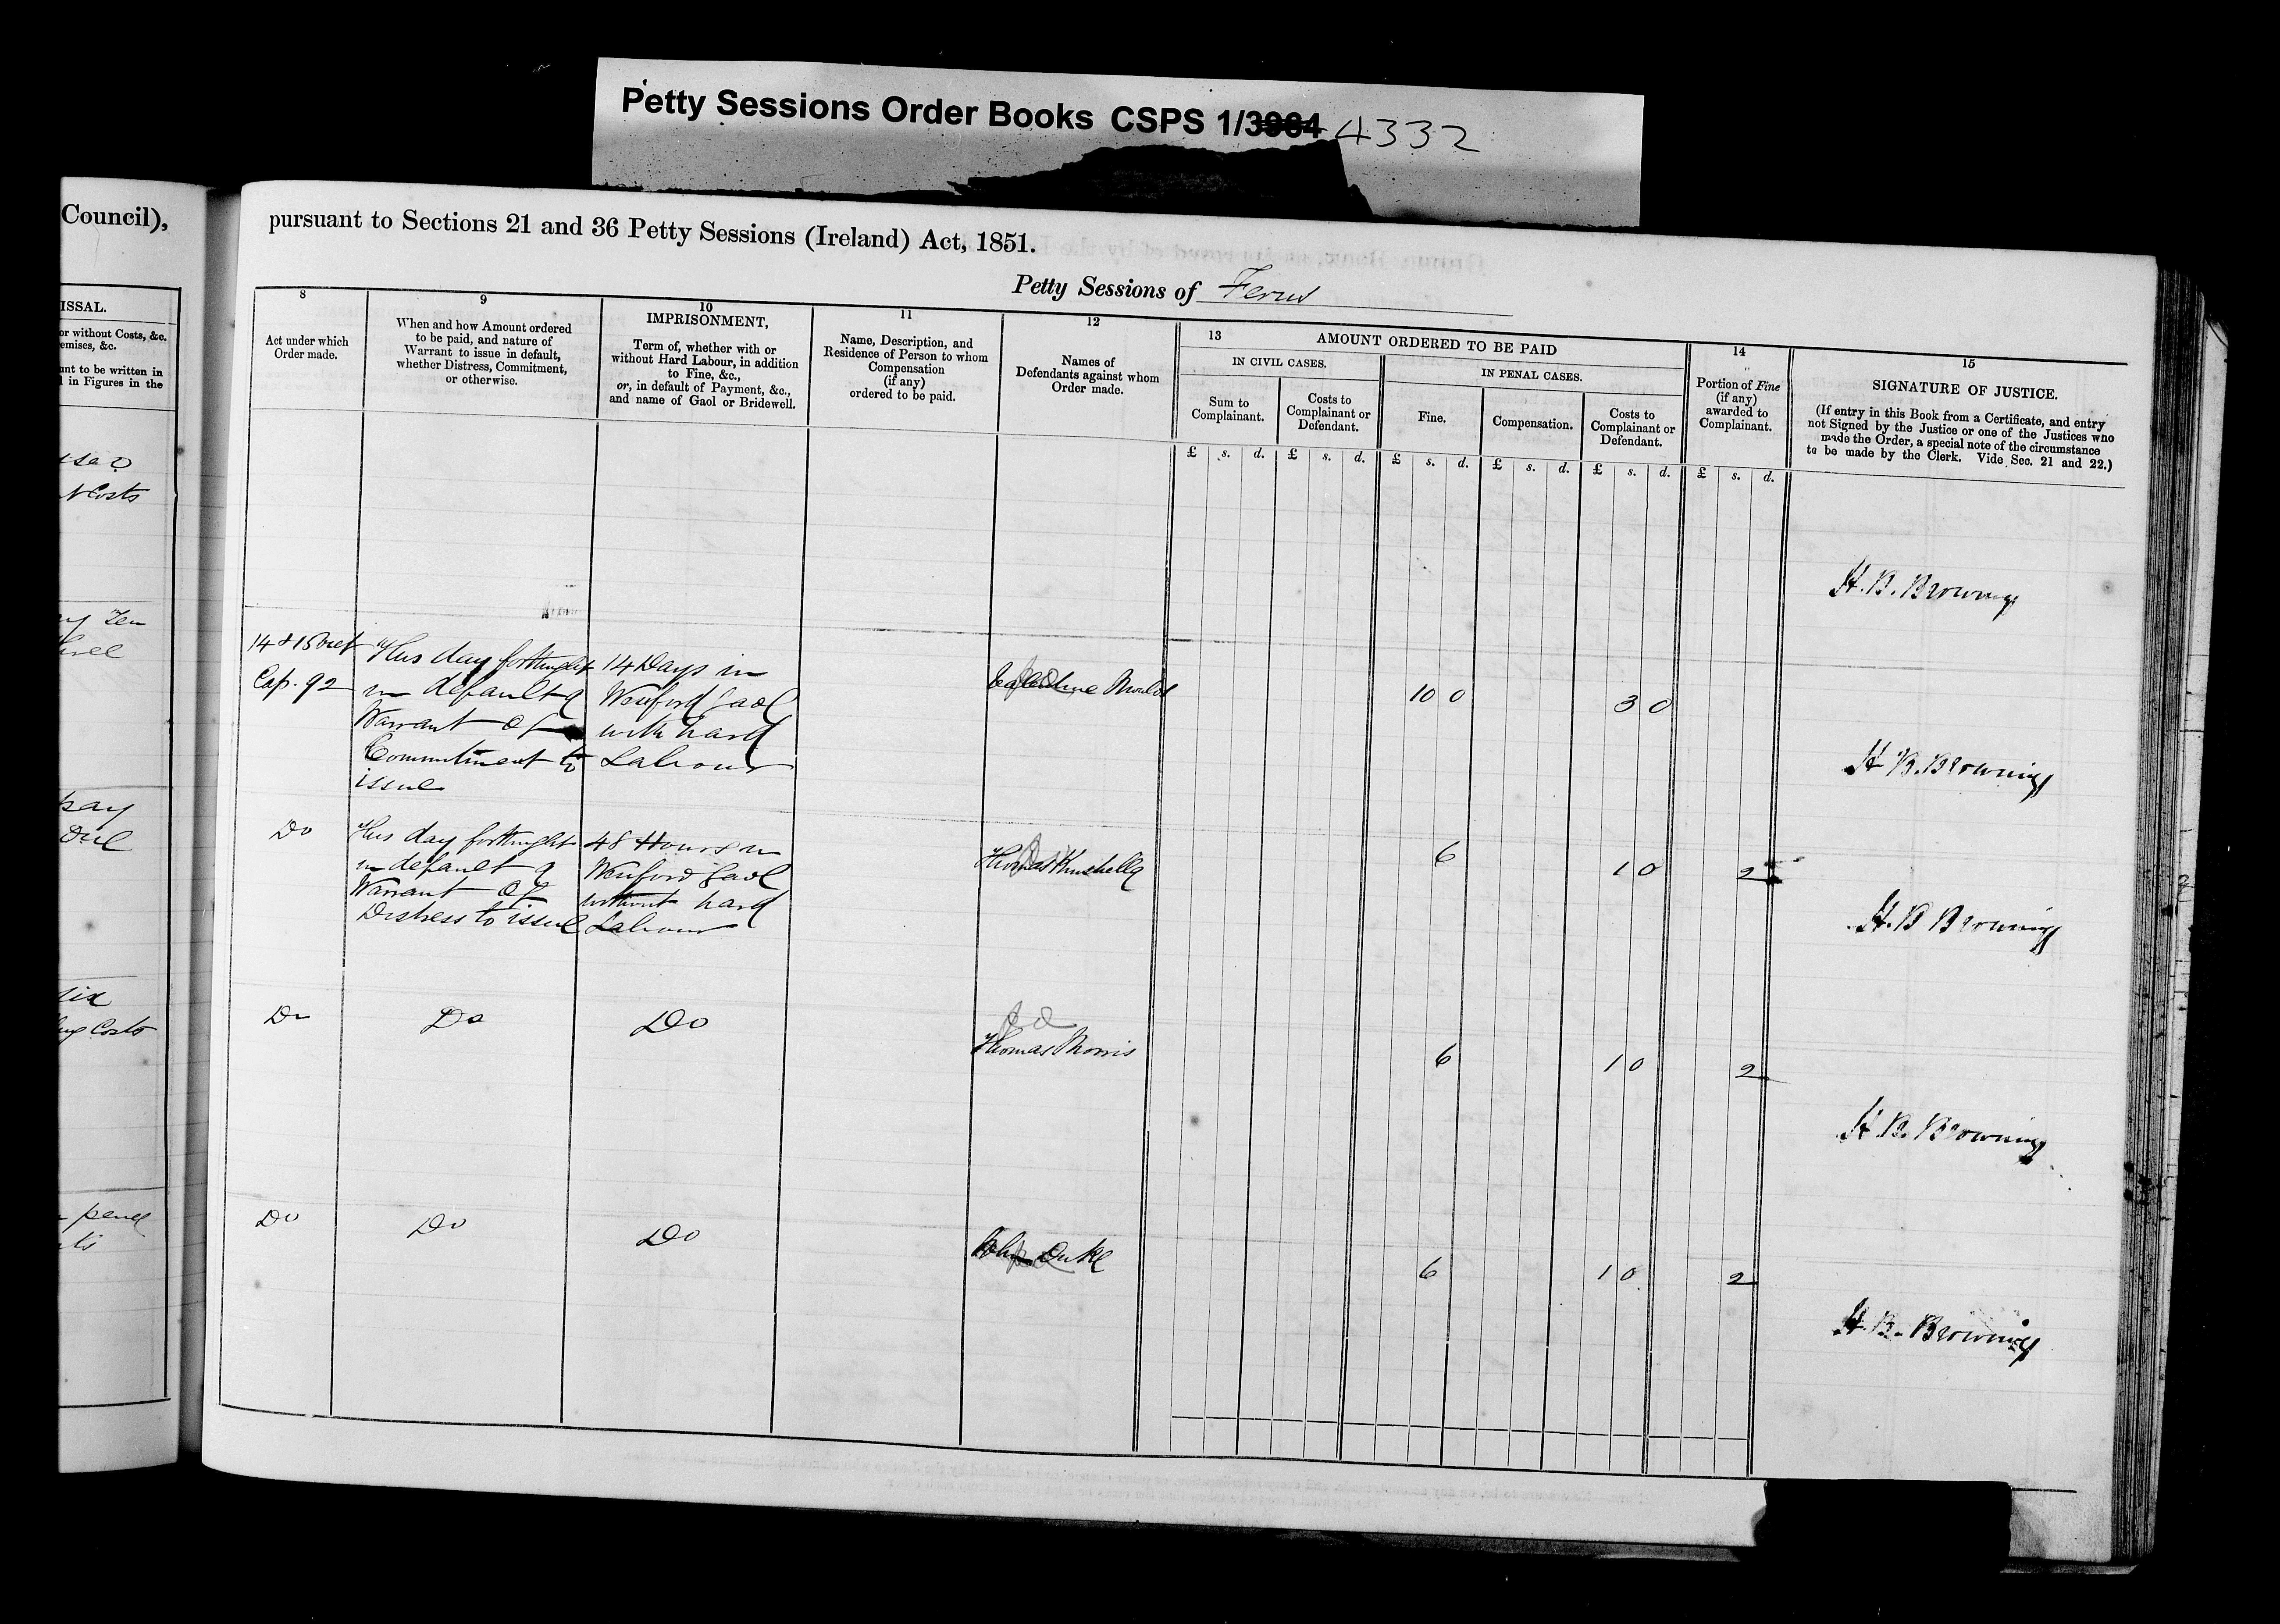 Petty Sessions Order Books CSPS 1/3984 4332
Council),
pursuant to Sections 21 and 36 Petty Sessions (Ireland) Act, 1851.
Petty Sessions of Ferns
ISSAL.
or without Costs, &c.
emises, &c.
ant to be written in
l in Figures in the
8
Act under which
Order made.
9
When and how Amount ordered
to be paid, and nature of
Warrant to issue in default,
whether Distress, Commitment,
or otherwise.
10
IMPRISONMENT,
Term of, whether with or
without Hard Labour, in addition
to Fine, &c.,
or, in default of Payment, &c.,
and name of Gaol or Bridewell.
11
Name, Description, and
Residence of Person to whom
Compensation
(if any)
ordered to be paid.
12
Names of
Defendants against whom
Order made.
13
AMOUNT ORDERED TO BE PAID
IN CIVIL CASES.
IN PENAL CASES.
Sum to
Complainant.
Costs to
Complainant or
Defendant.
Fine.
Compensation.
Costs to
Complainant or
Defendant.
14
Portion of Fine
(if any)
awarded to
Complainant.
15
SIGNATURE OF JUSTICE.
(If entry in this Book from a Certificate, and entry
not Signed by the Justice or one of the Justices who
made the Order, a special note of the circumstance
to be made by the Clerk. Vide Sec. 21 and 22.)
£ s. d. £ s. d. £ s. d. £ s. d. £ s. d. £ s. d.
Costs
H. B. Browning
14 & 15 Vict
Cap. 92
This day fortnight
in default a
Warrant of
Commitment to
issue
14 Days in
Wexford Gaol
with hard
Labour
10 0
3 0
H B. Browning
pay
Do
This day fortnight
in default a
Warrant of
Distress to issue
48 Hours in
Wexford Gaol
without hard
Labour
Thomas Kinshella
6
1 0
2
H. B Browning
six
Costs
Do
Do
Do
Thomas Morris
6
1 0
2
H B. Browning
Do
Do
Do
John Duke
6
1 0
2
H. B. Browning